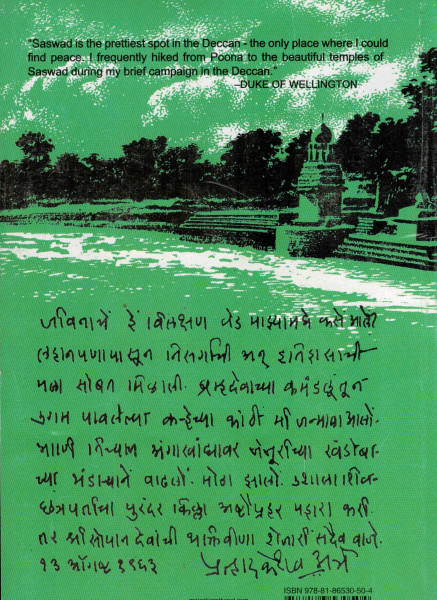 "Saswad is the prettiest spot in the Deccan - the only place where I could
find peace. I frequently hiked from Poona to the beautiful temples of
Saswad during my brief campaign in the Deccan."
–DUKE OF WELLINGTON
हें विलक्षण वेड माझ्यामध्यें कसें आलें
लहानपणापासून निसर्गाची अन् इतिहासाची
मला सोबत मिळाली. ब्रह्मदेवाच्या कमंडलूतून
उगम पावलेल्या कऱ्हेच्या कांठी मी जन्माला आलों.
आणि तिच्याच अंगाखांद्यावर जेजुरीच्या खंडोबा-
च्या भंडाऱ्याने वाढलों. मोठा झालों. उशाला शिव-
छत्रपतींचा पुरंदर किल्ला अष्टौप्रहर पहारा करी.
तर श्री सोपान देवांची भक्तिवीणा शेजारीं सदैव वाजे.
१३ ऑगस्ट १९६३ प्रल्हाद केशव अत्रे
ISBN 978-81-86530-50-4